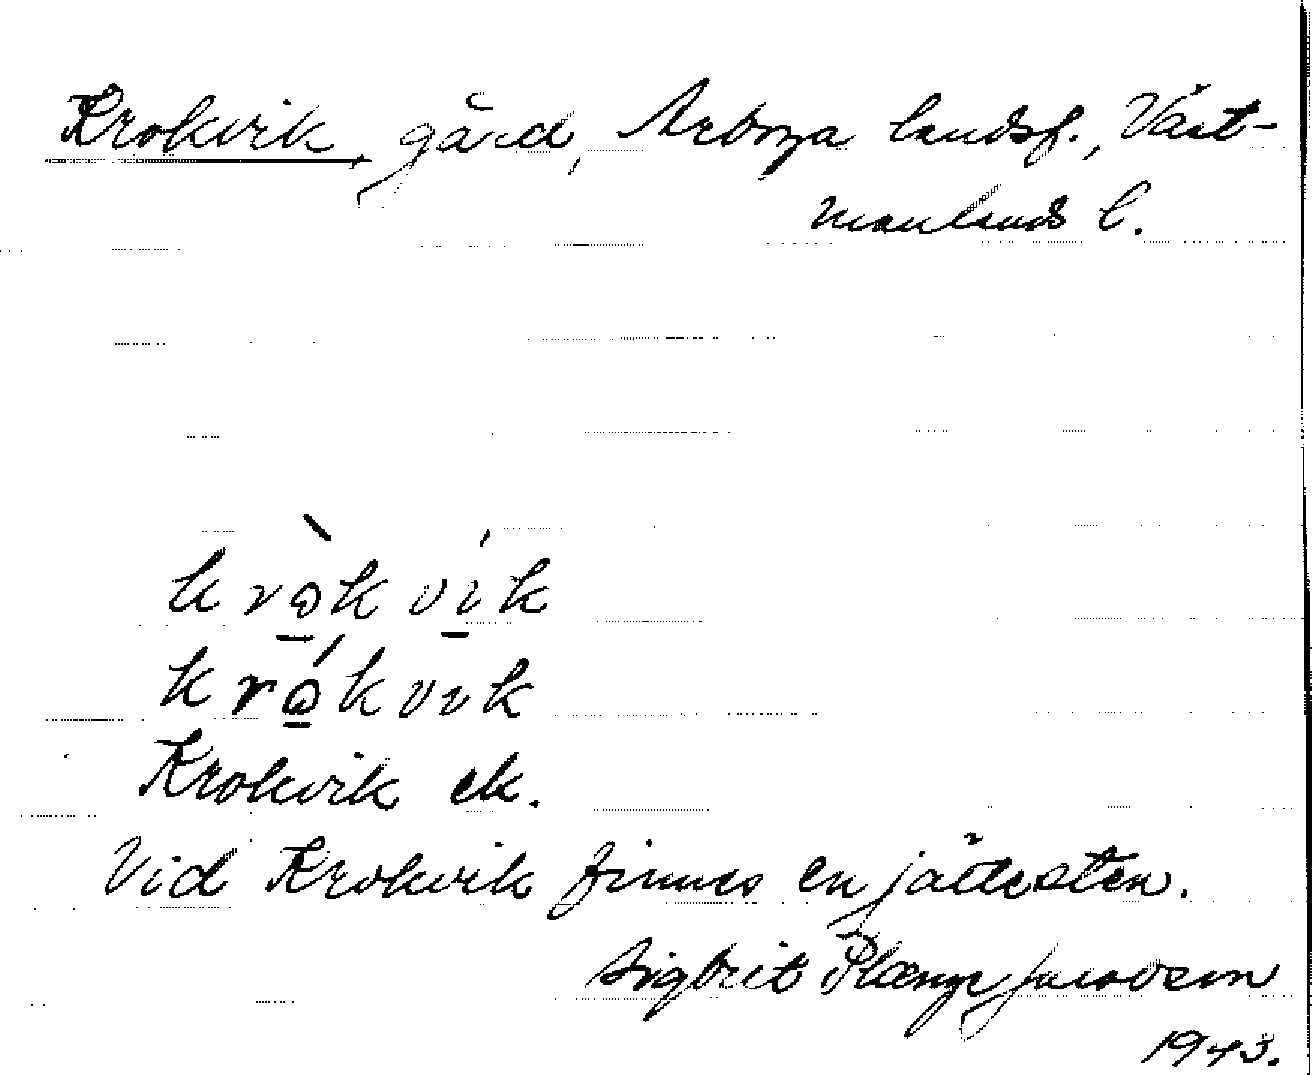 Krokvik, gård, Arboga landsf., Väst-
manlands l.
krò̱kví̱k
kró̱kvik
Krokvik ek.
Vid Krokvik finnes en jättesten.
Sigbrit Plænge Jacobson
1943.